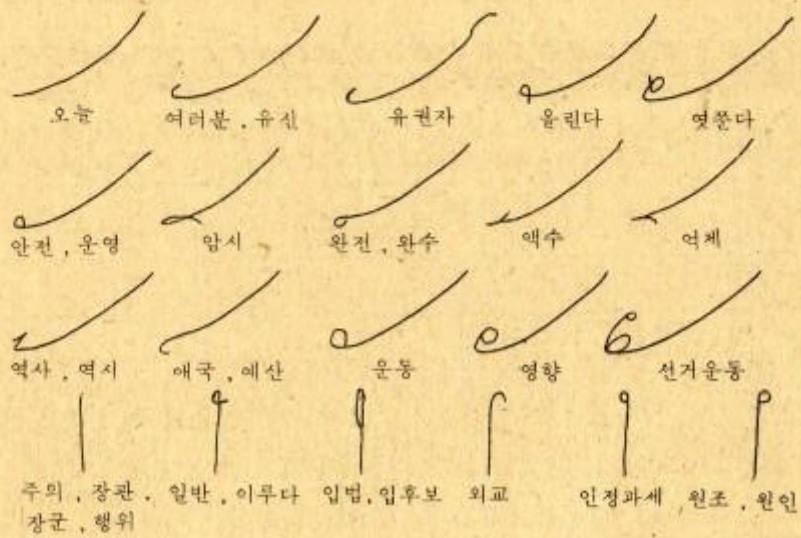 오늘 여러분, 유신 유권자 올린다 엿쭌다
안전, 운영 암시 완전, 완수 액수 억체
역사, 역시 애국, 예산 운동 영향 선거운동
주의, 장관, 일반, 이루다 입법, 입후보 외교 인정과세 원조, 원인
장군, 행위